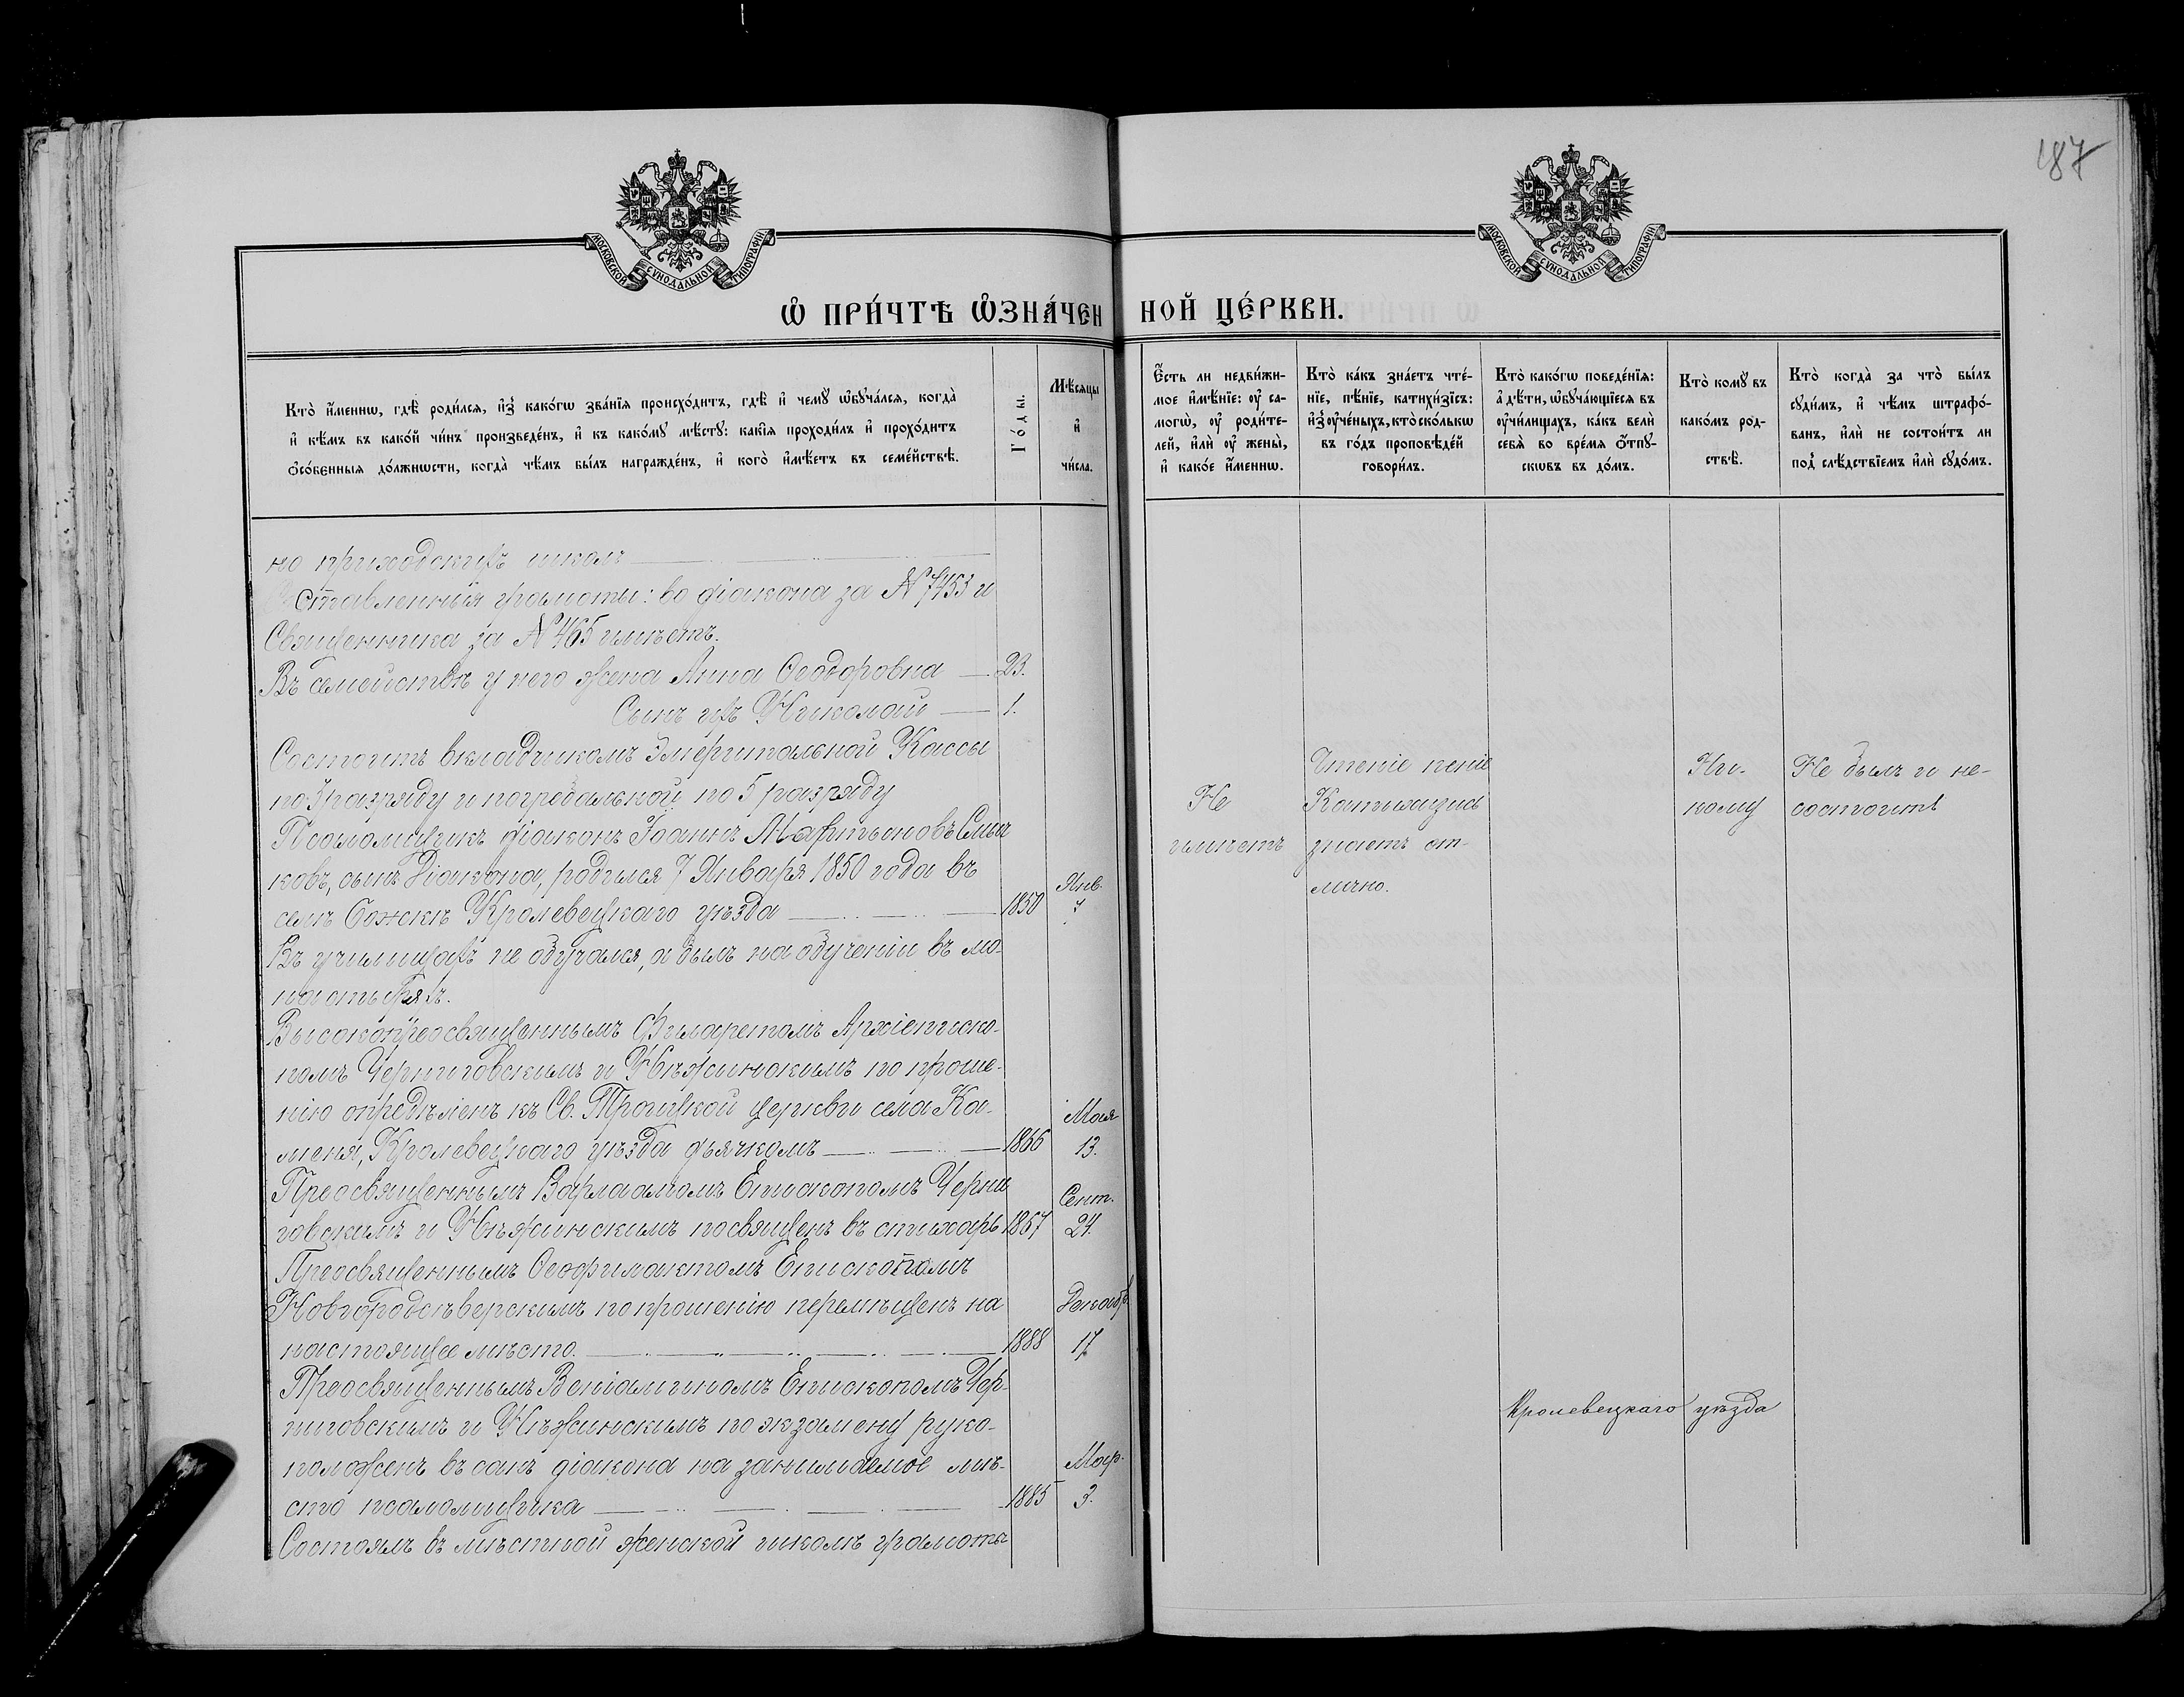 187
МОСКОВСКОЙ СѴНОДАЛЬНОЙ ТИПОГРАФІИ
МОСКОВСКОЙ СѴНОДАЛЬНОЙ ТИПОГРАФІИ
Ѡ ПРИ́ЧТѢ ѠЗНА́ЧЕН НОЙ ЦЕ́РКВИ.
Кто̀ и҆́меннѡ, гдѣ̀ роди́лсѧ, и҆з̾ како́гѡ зва́нїѧ происхо́дитъ, гдѣ̀ и҆ чемꙋ̀ ѡ҆бꙋча́лсѧ, когда̀
и҆ кѣ́мъ въ како́й чи́нъ произведе́нъ, и҆ къ како́мꙋ мѣ́стꙋ: какі̑ѧ проходи́лъ и҆ прохо́дитъ
ѻ҆со́бенныѧ до́лжнѡсти, когда̀ чѣ́мъ бы́лъ награжде́нъ, и҆ кого̀ и҆мѣ́етъ въ семе́йствѣ.
Го́ды.
Мѣ́сѧцы
и҆
чи́сла.
Є҆́сть ли недви́жи-
мое и҆мѣ́нїе: оу҆ са-
могѡ̀, оу҆ роди́те-
лей, и҆лѝ оу҆ жены̀,
и҆ како́е и҆́меннѡ.
Кто̀ ка́къ зна́етъ чте́-
нїе, пѣ́нїе, катихи́зїсъ:
и҆з̾ оу҆че́ныхъ, кто̀ ско́лькѡ
въ го́дъ проповѣ́дей
говори́лъ.
Кто̀ како́гѡ поведе́нїѧ:
а҆ дѣ́ти, ѡ҆бꙋча́ющїесѧ въ
оу҆чи́лищахъ, ка́къ велѝ
себѧ̀ во вре́мѧ ѿпꙋ-
скѡвъ въ до́мъ.
Кто̀ комꙋ̀ въ
како́мъ род-
ствѣ̀.
Кто̀ когда̀ за что̀ бы́лъ
сꙋди́мъ, и҆ чѣ́мъ штрафо́-
ванъ, и҆лѝ не состои́тъ ли
под̾ слѣ́дствїемъ и҆лѝ сꙋдо́мъ.
но приходскихъ школъ
Ставленныя грамоты: во діакона за № 7453 и
Священника за № 465 имѣетъ.
Въ семействѣ у него жена Анна Ѳеодоровна 23.
Сынъ ихъ Николай 1.
Состоитъ вкладчикомъ Эмеритальной Кассы
по 3 разряду и погребальной по 5 разряду
Псаломщикъ діаконъ Іоаннъ Мартыновъ
ковъ, сынъ Діакона, родился 7 Января 1850 года въ
селѣ Кролевецкаго уѣзда 1850 Янв. 7
Въ училищахъ не обучался, а былъ на обученіи въ мо-
настыряхъ.
Высокопреосвященнымъ Филаретомъ Архіеписко-
помъ Черниговскимъ и Нѣжинскимъ по проше-
нію опредѣленъ къ Св. Троицкой церкви села Ка-
меня, Кролевецкаго уѣзда дьячкомъ 1866 Мая 13.
Преосвященнымъ Варлаамомъ Епископомъ Черни
говскимъ и Нѣжинскимъ посвященъ въ стихарь 1867 Сент. 24.
Преосвященнымъ Ѳеофилактомъ Епископомъ
Новгородсѣверскимъ по прошенію перемѣщенъ на
настоящее мѣсто. 1888 Декабр. 17
Преосвященнымъ Веніаминомъ Епископомъ Чер-
ниговскимъ и Нѣжинскимъ по экзамену руко-
положенъ въ санъ діакона на занимаемое мѣ-
сто псаломщика 1885 Мар. 3.
Состоялъ въ мѣстной женской школѣ грамоты
Не
имѣетъ
Чтеніе пеніе
Катихизисъ
знаетъ от-
лично.
Ни-
кому
Не былъ и не-
состоитъ
Кролевецкаго уѣзда